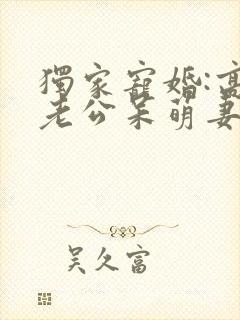 獨家寵婚:高
老公呆萌妻
吴久富